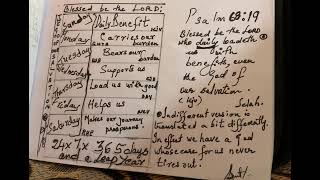 Blessed be the LORD:
Sunday
Daily Benefit
Monday
Carries our
burden
Tuesday
Bears our
burden
Wednesday
Supports us
Thursday
Load us with good
Friday
Helps us
Saturday
Makes our journey
prosperous
24 x 7 x 365 days
and a Leap Year
Psalm 68:19
Blessed be the LORD
who daily loadeth
us with
benefits, even
the God of
our salvation.
(KJV) Selah.
In different version is
translated a bit differently.
In effect we have a God
whose care for us never
tires out!